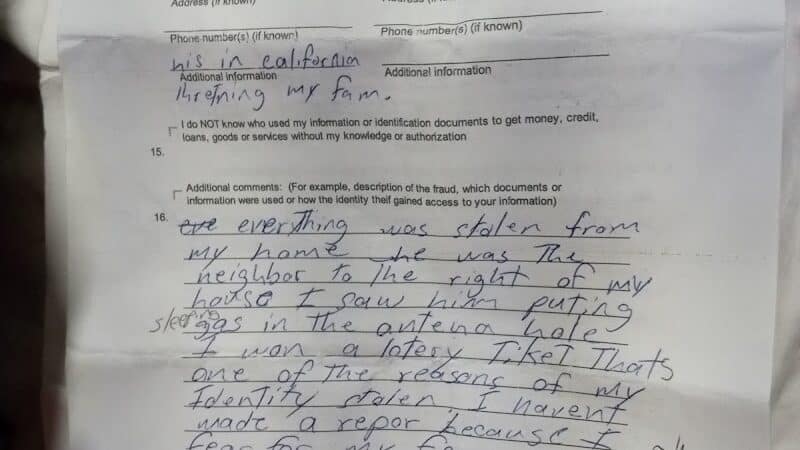 Address (if known)
Phone number(s) (if known)
Phone number(s) (if known)
his in california
Additional information
Additional information
thretning my fam.
I do NOT know who used my information or identification documents to get money, credit,
loans, goods or services without my knowledge or authorization
15.
Additional comments: (For example, description of the fraud, which documents or
information were used or how the identity theif gained access to your information)
16.
eve everything was stolen from
my home he was The
neighbor to the right of my
house I saw him puting
sleeping
gas in the antena hole
I won a lotery Tiket Thats
one of the reasons of my
Identity stolen, I havent
made a repor because I
fear for my